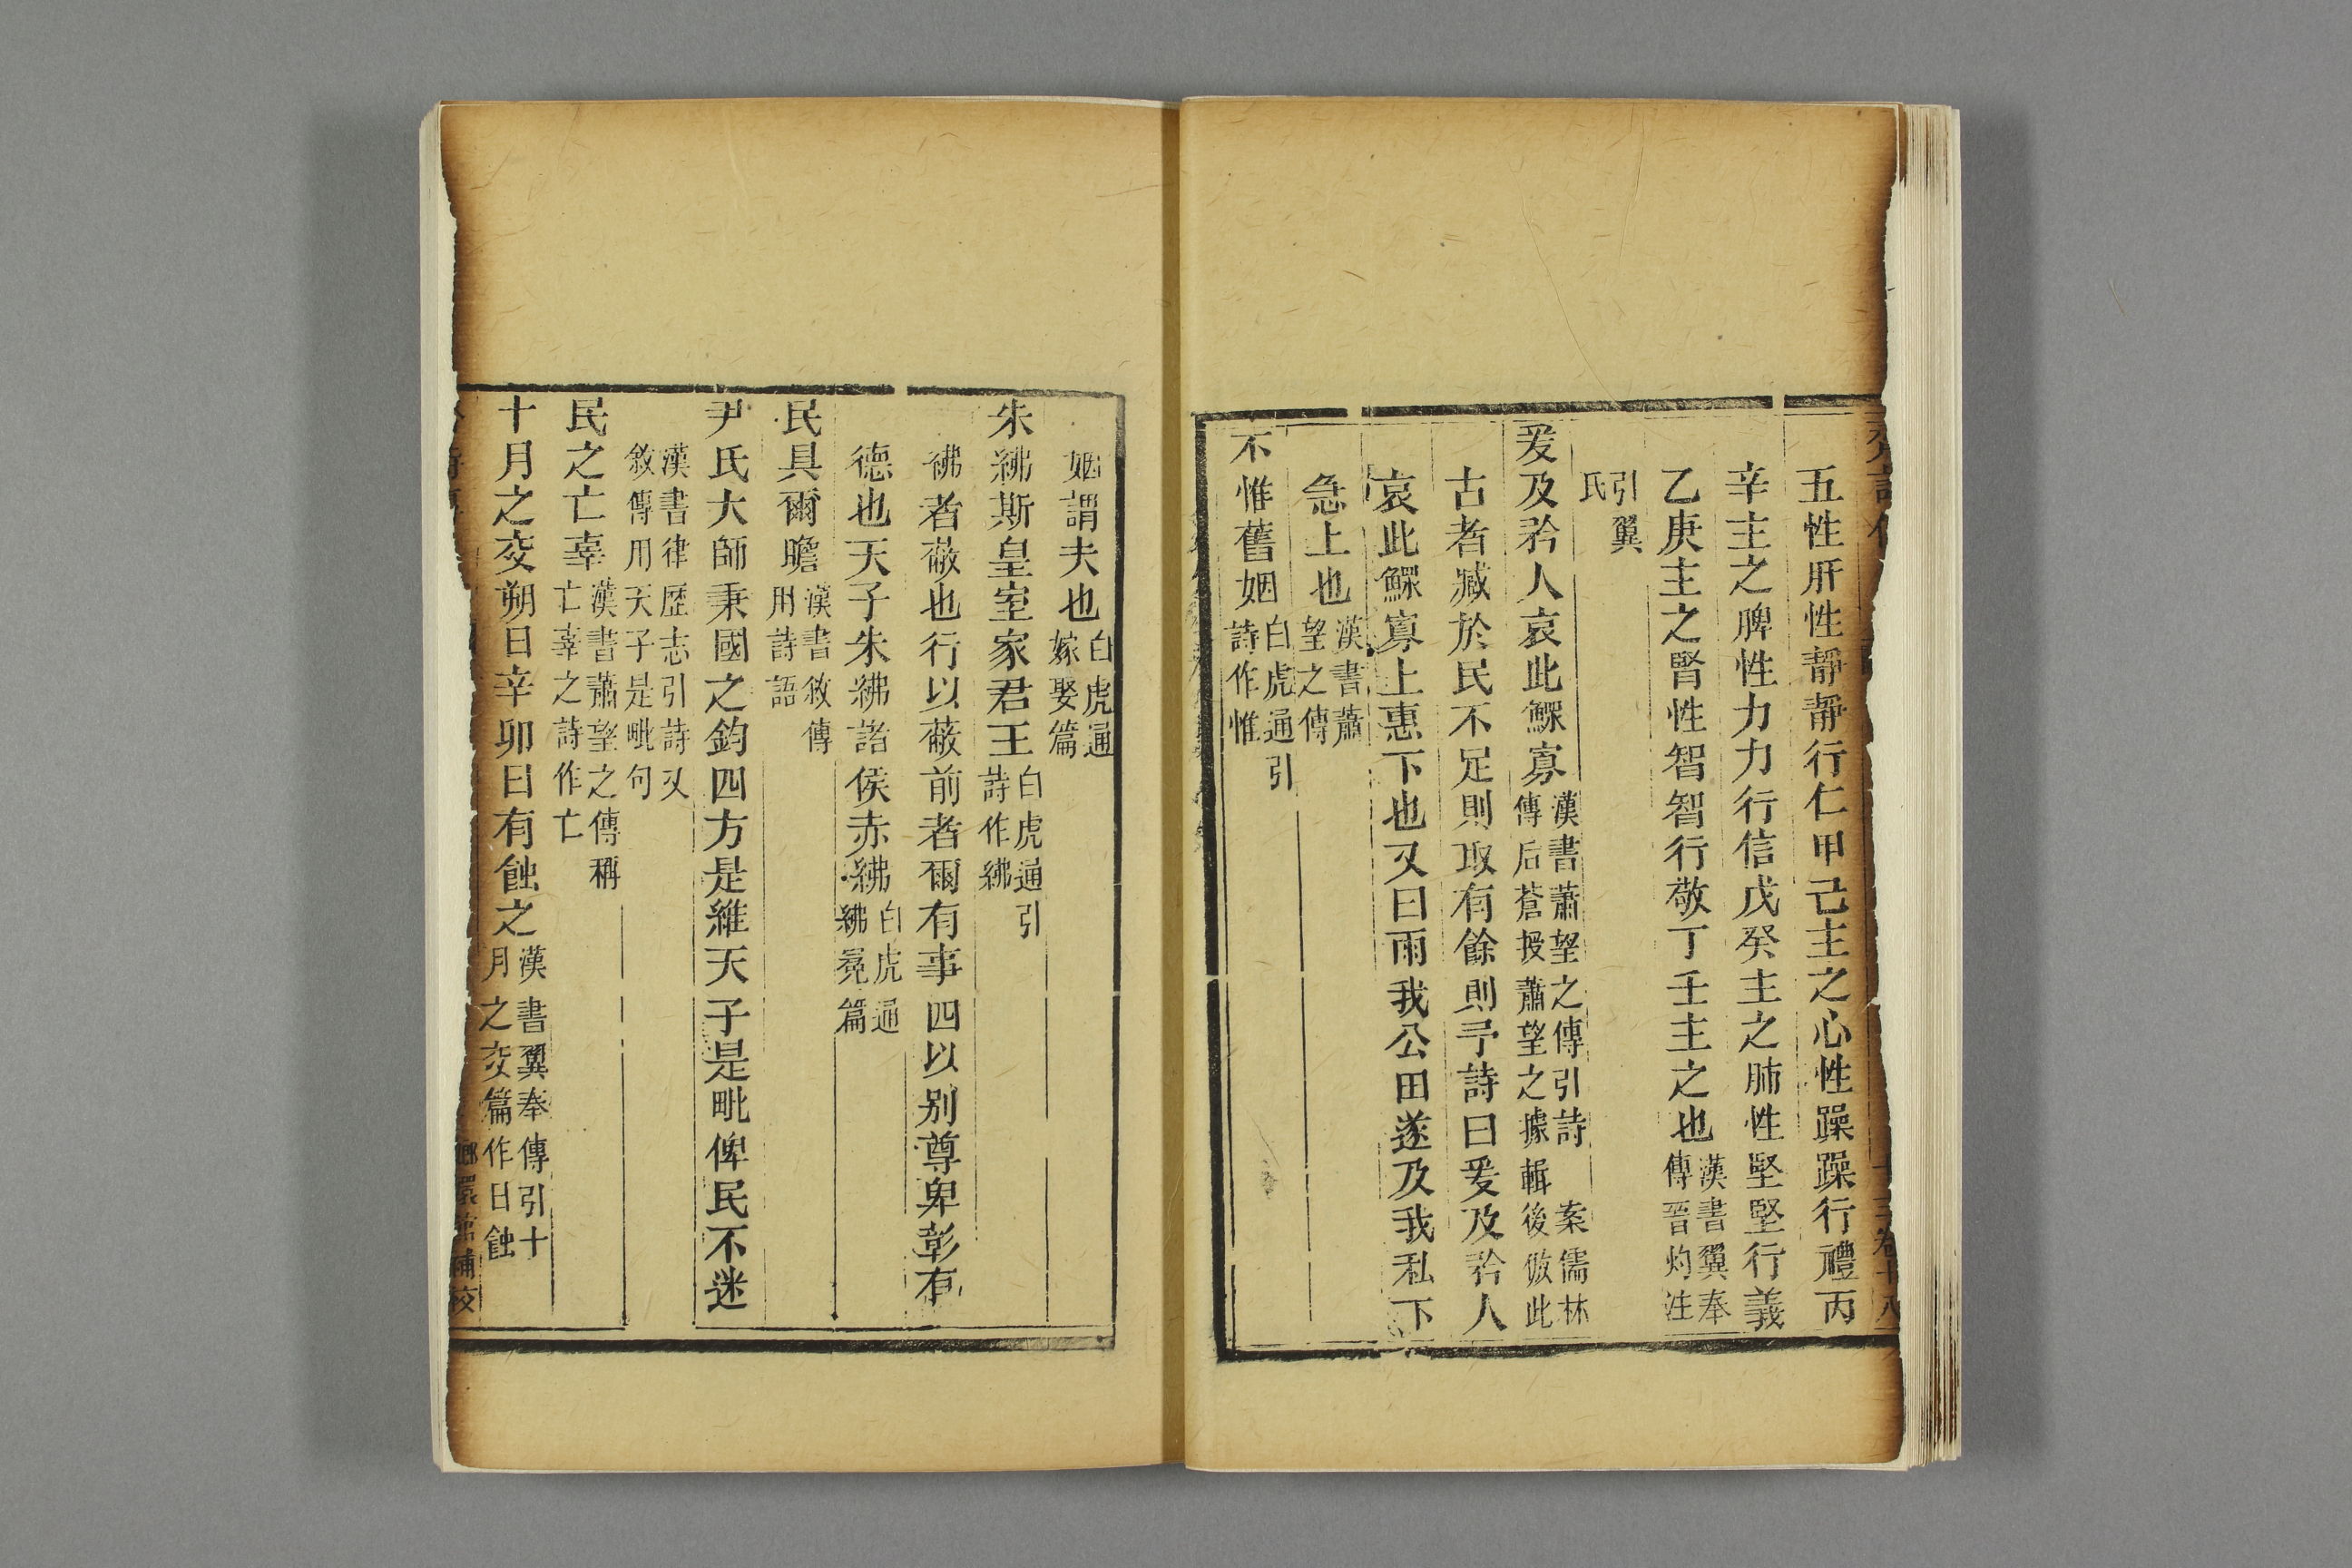 五性肝性靜靜行仁甲己主之心性躁躁行禮丙
辛主之脾性力力行信戊癸主之肺性堅堅行義
乙庚主之腎性智智行敬丁壬主之也漢書翼奉
傳晉灼注
引翼
氏
爰及矜人哀此鰥寡漢書蕭望之傳引詩 案儒林
傳后蒼授蕭望之據輯後倣此
古者臧於民不足則取有餘則予詩曰爰及矜人
哀此鰥寡上惠下也又曰雨我公田遂及我私下
急上也漢書蕭
望之傳
不惟舊姻白虎通引
詩作惟
姻謂夫也白虎通
嫁娶篇
朱紼斯皇室家君王白虎通引
詩作紼
紼者蔽也行以蔽前者爾有事四以别尊卑彰有
德也天子朱紼諸侯赤紼白虎通
紼冕篇
民具爾瞻漢書敘傳
用詩語
尹氏大師秉國之鈞四方是維天子是毗俾民不迷
漢書律歷志引詩又
敘傳用天子是毗句
民之亡辜漢書蕭望之傳稱
亡辜之詩作亡
十月之交朔日辛卯日有蝕之漢書翼奉傳引十
月之交篇作日蝕
嫏嬛館補校